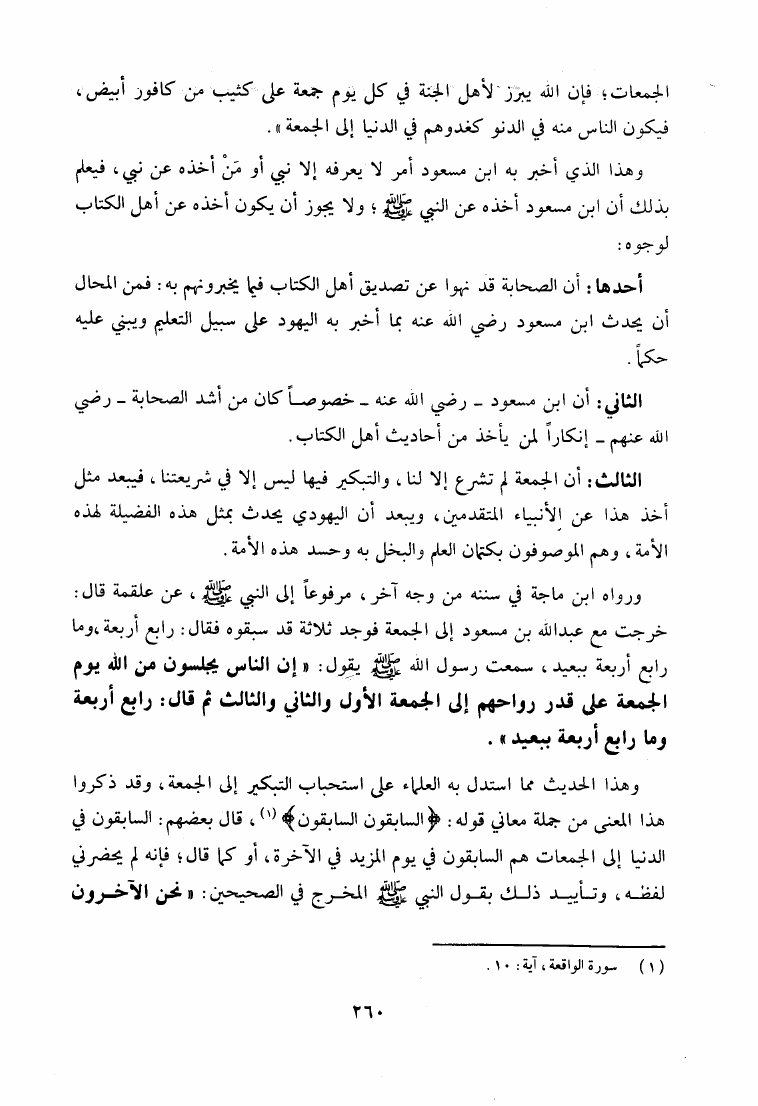 الجمعات؛ فإن الله يبرز لأهل الجنة في كل يوم جمعة على كثيب من كافور أبيض،
فيكون الناس منه في الدنو كغدوهم في الدنيا إلى الجمعة».
وهذا الذي أخبر به ابن مسعود أمر لا يعرفه إلا نبي أو مَنْ أخذه عن نبي، فيعلم
بذلك أن ابن مسعود أخذه عن النبي ﷺ؛ ولا يجوز أن يكون أخذه عن أهل الكتاب
لوجوه:
أحدها: أن الصحابة قد نهوا عن تصديق أهل الكتاب فيما يخبرونهم به: فمن المحال
أن يحدث ابن مسعود رضي الله عنه بما أخبر به اليهود على سبيل التعليم ويبني عليه
حكماً.
الثاني: أن ابن مسعود - رضي الله عنه - خصوصاً كان من أشد الصحابة - رضي
الله عنهم - إنكاراً لمن يأخذ من أحاديث أهل الكتاب.
الثالث: أن الجمعة لم تشرع إلا لنا، والتبكير فيها ليس إلا في شريعتنا، فيبعد مثل
أخذ هذا عن الأنبياء المتقدمين، ويبعد أن اليهودي يحدث بمثل هذه الفضيلة لهذه
الأمة، وهم الموصوفون بكتمان العلم والبخل به وحسد هذه الأمة.
ورواه ابن ماجة في سننه من وجه آخر، مرفوعاً إلى النبي ﷺ، عن علقمة قال:
خرجت مع عبدالله بن مسعود إلى الجمعة فوجد ثلاثة قد سبقوه فقال: رابع أربعة،وما
رابع أربعة ببعيد، سمعت رسول الله ﷺ يقول: «إن الناس يجلسون من الله يوم
الجمعة على قدر رواحهم إلى الجمعة الأول والثاني والثالث ثم قال: رابع أربعة
وما رابع أربعة ببعيد».
وهذا الحديث مما استدل به العلماء على استحباب التبكير إلى الجمعة، وقد ذكروا
هذا المعنى من جملة معاني قوله: ﴿السابقون السابقون﴾(١)، قال بعضهم: السابقون في
الدنيا إلى الجمعات هم السابقون في يوم المزيد في الآخرة، أو كما قال؛ فإنه لم يحضرني
لفظه، وتأييد ذلك بقول النبي ﷺ المخرج في الصحيحين: «نحن الآخرون
(١) سورة الواقعة، آية: ١٠.
٢٦٠